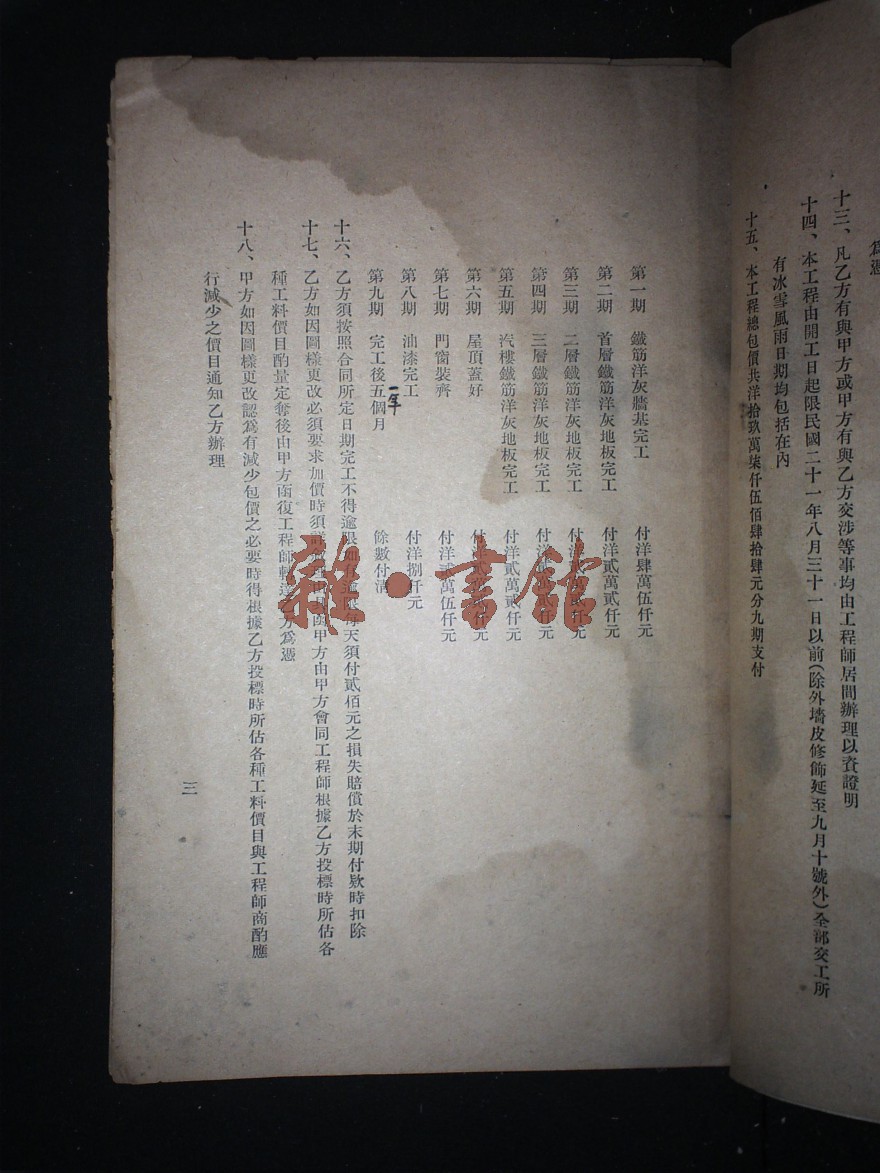 爲憑
十三、凡乙方有與甲方或甲方有與乙方交涉等事均由工程師居間辦理以資證明
十四、本工程由開工日起限民國二十一年八月三十一日以前(除外墻皮修飾延至九月十號外)全部交工所
有冰雪風雨日期均包括在內
十五、本工程總包價共洋拾玖萬柒仟伍佰肆拾肆元分九期支付
第一期 鐵筋洋灰牆基完工 付洋肆萬伍仟元
第二期 首層鐵筋洋灰地板完工 付洋貳萬貳仟元
第三期 二層鐵筋洋灰地板完工 付洋貳萬貳仟元
第四期 三層鐵筋洋灰地板完工 付洋貳萬貳仟元
第五期 汽樓鐵筋洋灰地板完工 付洋貳萬貳仟元
第六期 屋頂蓋好 付洋貳萬仟元
第七期 門窗裝齊 付洋貳萬伍仟元
第八期 油漆完工 付洋捌仟元
第九期 完工後五個月 餘數付清
一年
十六、乙方須按照合同所定日期完工不得逾限如每天須付貳佰元之損失賠償於末期付欵時扣除
十七、乙方如因圖樣更改必須要求加價時須甲方由甲方會同工程師根據乙方投標時所估各
種工料價目酌量定奪後由甲方函復工程師轉達乙方爲憑
十八、甲方如因圖樣更改認爲有減少包價之必要時得根據乙方投標時所估各種工料價目與工程師商酌應
行減少之價目通知乙方辦理
三
雜·書館